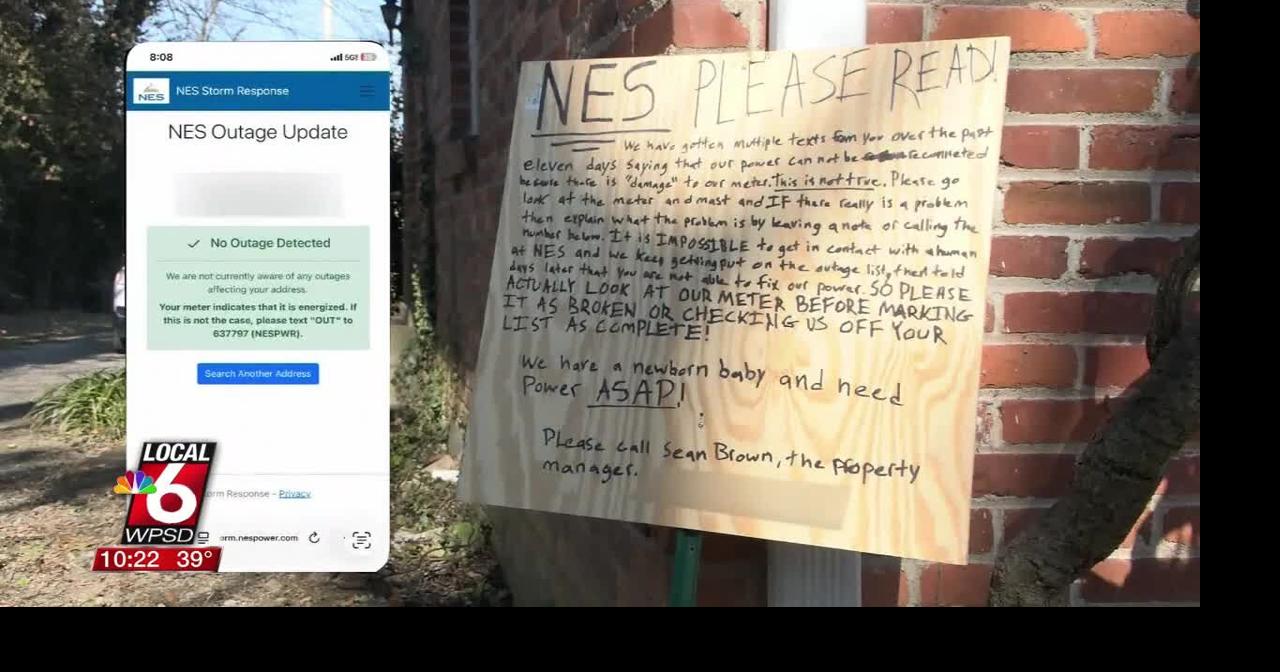 8:08
5G
NES
NES Storm Response
NES Outage Update
✓ No Outage Detected
We are not currently aware of any outages
affecting your address.
Your meter indicates that it is energized. If
this is not the case, please text "OUT" to
637797 (NESPWR).
Search Another Address
orm Response - Privacy
orm.nespower.com
LOCAL
6
WPSD
10:22 39°
NES PLEASE READ!
We have gotten multiple texts from you over the past
eleven days saying that our power can not be reconnected
because there is "damage" to our meter. This is not true. Please go
look at the meter and mast and IF there really is a problem
then explain what the problem is by leaving a note or calling the
number below. It is IMPOSSIBLE to get in contact with a human
at NES and we keep getting put on the outage list, then told
days later that you are not able to fix our power. SO PLEASE
ACTUALLY LOOK AT OUR METER BEFORE MARKING
IT AS BROKEN OR CHECKING US OFF YOUR
LIST AS COMPLETE!
We have a newborn baby and need
Power ASAP!
Please call Sean Brown, the property
manager.